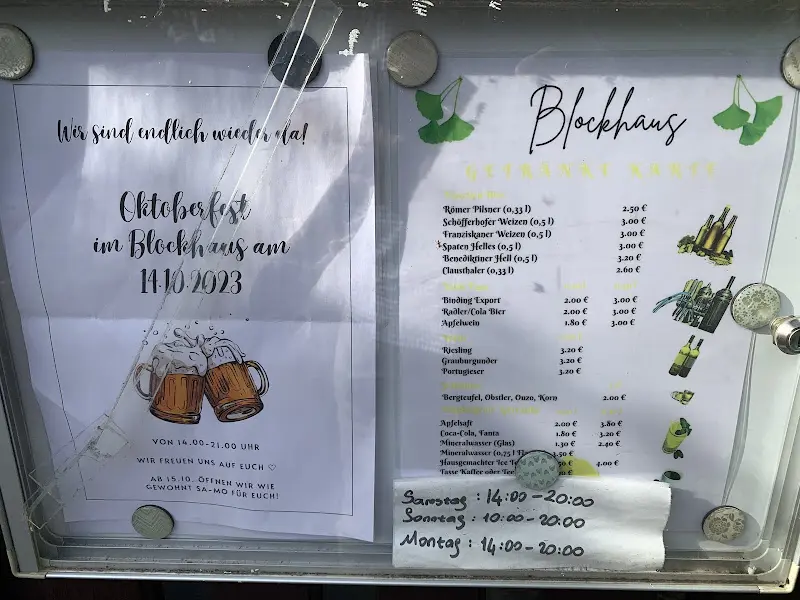 Wir sind endlich wieder da!
Oktoberfest
im Blockhaus am
14.10.2023
VON 14.00-21.00 UHR
WIR FREUEN UNS AUF EUCH ♡
AB 15.10. ÖFFNEN WIR WIE
GEWOHNT SA-MO FÜR EUCH!
Blockhaus
GETRÄNKE KARTE
Römer Pilsner (0,33 l) 2.50 €
Schöfferhofer Weizen (0,5 l) 3.00 €
Franziskaner Weizen (0,5 l) 3.00 €
Spaten Helles (0,5 l) 3.00 €
Benediktiner Hell (0,5 l) 3.20 €
Clausthaler (0,33 l) 2.60 €
Binding Export 2.00 € 3.00 €
Radler/Cola Bier 2.00 € 3.00 €
Apfelwein 1.80 € 3.00 €
Riesling 3.20 €
Grauburgunder 3.20 €
Portugieser 3.20 €
Bergteufel, Obstler, Ouzo, Korn 2.00 €
Apfelsaft 2.00 € 3.80 €
Coca-Cola, Fanta 1.80 € 3.20 €
Mineralwasser (Glas) 1.30 € 2.40 €
Mineralwasser (0,75 l 3.50 €
Hausgemachter Ice 4.00 €
Tasse Kaffee oder
Samstag : 14:00-20:00
Sonotag : 10:00-20:00
Montag : 14:00-20:00